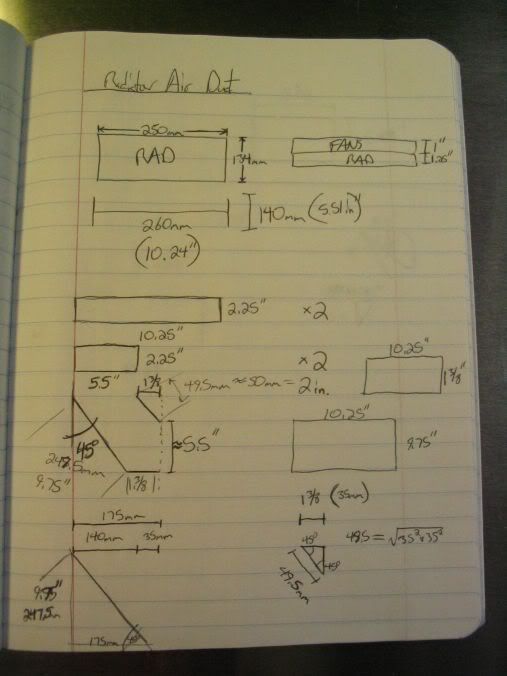 Radiator Air Duct
250mm
RAD
134mm
FANS
RAD
1"
1.25"
260mm
(10.24")
140mm (5.51in)
2.25"
×2
10.25"
2.25"
×2
5.5"
1 3/8
49.5mm ≈ 50mm = 2in.
10.25"
1 3/8"
45°
9.75"
≈5.5"
1 3/8
10.25"
9.75"
175mm
140mm
35mm
1 3/8 (35mm)
45°
45°
49.5mm
9.75"
247.5m
175mm
45°